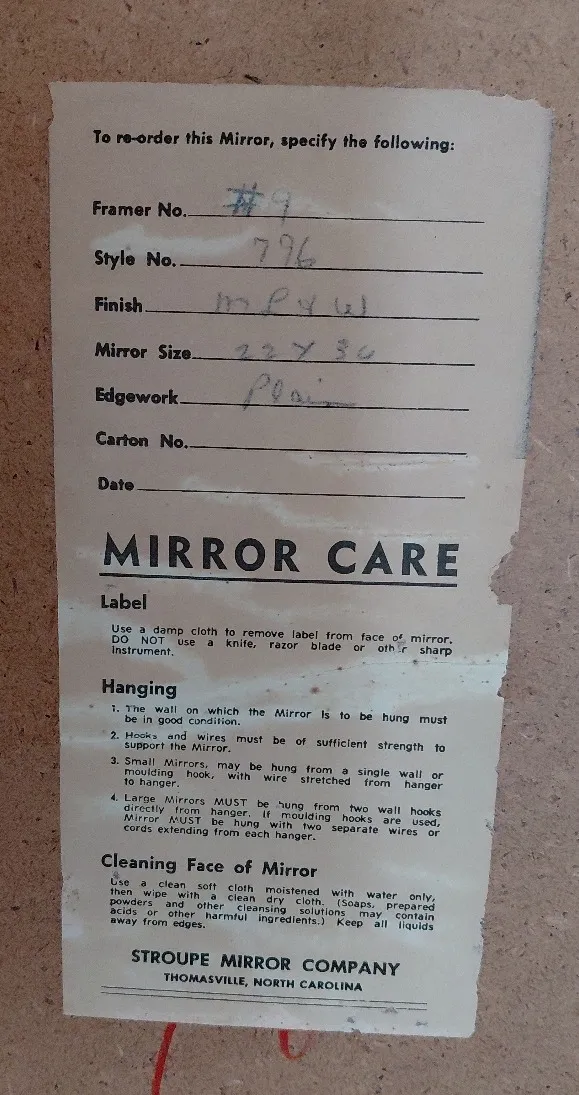 To re-order this Mirror, specify the following:
Framer No. #9
Style No. 796
Finish
Mirror Size 22 x 36
Edgework Plain
Carton No.
Date
MIRROR CARE
Label
Use a damp cloth to remove label from face of mirror.
DO NOT use a knife, razor blade or other sharp
instrument.
Hanging
1. The wall on which the Mirror is to be hung must
be in good condition.
2. Hooks and wires must be of sufficient strength to
support the Mirror.
3. Small Mirrors, may be hung from a single wall or
moulding hook, with wire stretched from hanger
to hanger.
4. Large Mirrors MUST be hung from two wall hooks
directly from hanger. If moulding hooks are used,
Mirror MUST be hung with two separate wires or
cords extending from each hanger.
Cleaning Face of Mirror
Use a clean soft cloth moistened with water only,
then wipe with a clean dry cloth. (Soaps, prepared
powders and other cleansing solutions may contain
acids or other harmful ingredients.) Keep all liquids
away from edges.
STROUPE MIRROR COMPANY
THOMASVILLE, NORTH CAROLINA